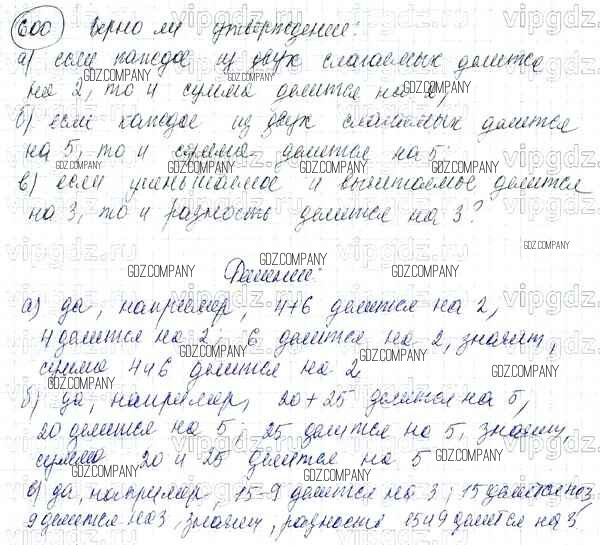 600 Верно ли утверждение:
а) если каждое из двух слагаемых делится
на 2, то и сумма делится на 2;
б) если каждое из двух слагаемых делится
на 5, то и сумма делится на 5;
в) если уменьшаемое и вычитаемое делится
на 3, то и разность делится на 3?
Решение:
а) да, например, 4+6 делится на 2,
4 делится на 2; 6 делится на 2, значит,
сумма 4 и 6 делится на 2
б) да, например, 20+25 делится на 5,
20 делится на 5, 25 делится на 5, значит,
сумма 20 и 25 делится на 5
в) да, например, 15-9 делится на 3; 15 делится на 3,
9 делится на 3, значит, разность 15 и 9 делится на 3